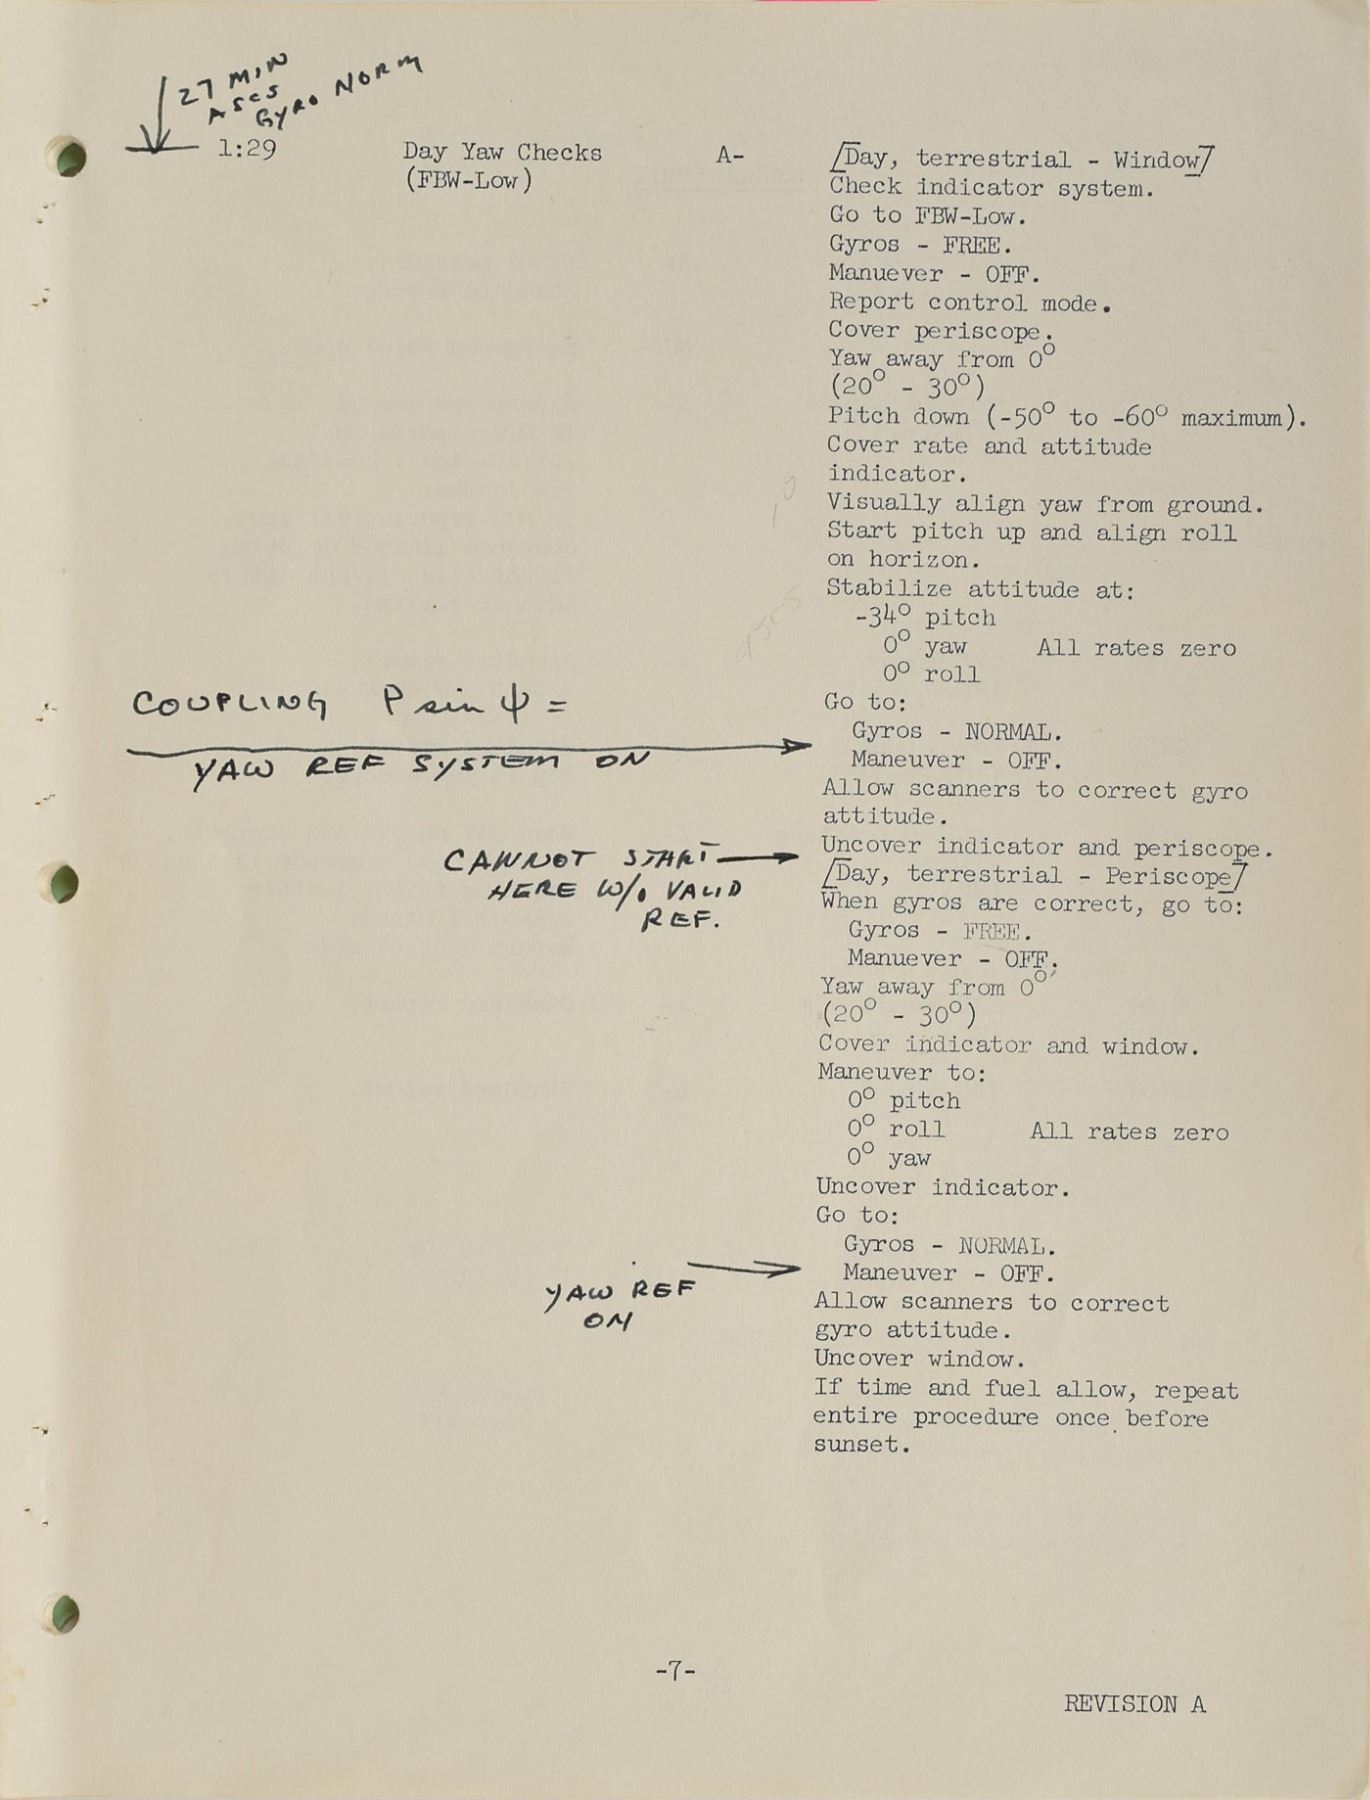 27 MIN
ASCS
GYRO NORM
1:29 Day Yaw Checks A- [Day, terrestrial - Window]
(FBW-Low)
Check indicator system.
Go to FBW-Low.
Gyros - FREE.
Manuever - OFF.
Report control mode.
Cover periscope.
Yaw away from 0°
(20° - 30°)
Pitch down (-50° to -60° maximum).
Cover rate and attitude
indicator.
Visually align yaw from ground.
Start pitch up and align roll
on horizon.
Stabilize attitude at:
-34° pitch
0° yaw All rates zero
0° roll
COUPLING P sin ψ =
Go to:
Gyros - NORMAL.
YAW REF SYSTEM ON
Maneuver - OFF.
Allow scanners to correct gyro
attitude.
Uncover indicator and periscope.
CANNOT START
HERE W/O VALID
REF.
[Day, terrestrial - Periscope]
When gyros are correct, go to:
Gyros - FREE.
Manuever - OFF.
Yaw away from 0°
(20° - 30°)
Cover indicator and window.
Maneuver to:
0° pitch
0° roll All rates zero
0° yaw
Uncover indicator.
Go to:
Gyros - NORMAL.
Maneuver - OFF.
YAW REF
ON
Allow scanners to correct
gyro attitude.
Uncover window.
If time and fuel allow, repeat
entire procedure once before
sunset.
-7-
REVISION A